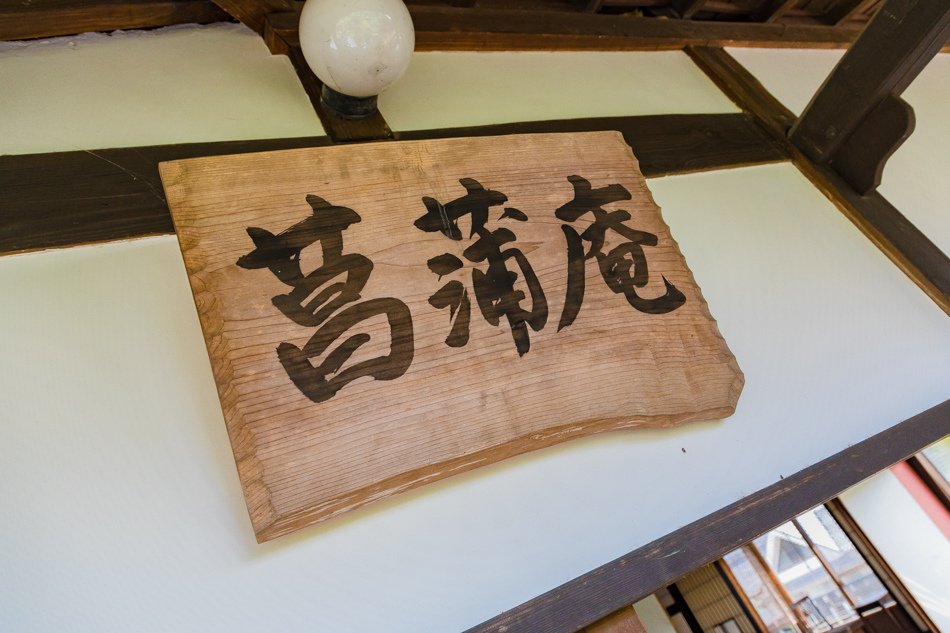 菖蒲庵